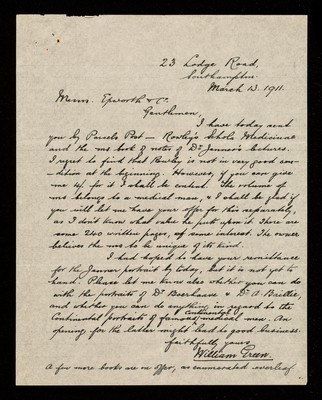 23 Lodge Road,
Southampton
March 13. 1911.
Messrs. Epworth & Co.
Gentlemen,
I have today sent
you by Parcels Post — Rowley's Schola Medicinae
and the ms book of notes of Dr. Jenner's lectures.
I regret to find that Rowley is not in very good con-
-dition at the beginning. However, if you can give
me 4/- for it I shall be content. The volume of
ms belongs to a medical man, & I shall be glad if
you will let me have your offer for this separately,
as I don't know what value he puts upon it. There are
some 240 written pages, of some interest. The owner
believes the ms to be unique of its kind.
I had hoped to have your remittance
for the Jenner portrait by today, but it is not yet to
hand. Please let me know also whether you can do
with the portraits of Dr Boerhaave & Dr A.
and whether you can do anything in regard to the
Continental portraits of famous continental medical men. An
opening for the latter might lead to good business.
faithfully yours,
William Green.
A few more books are on offer, as enumerated overleaf